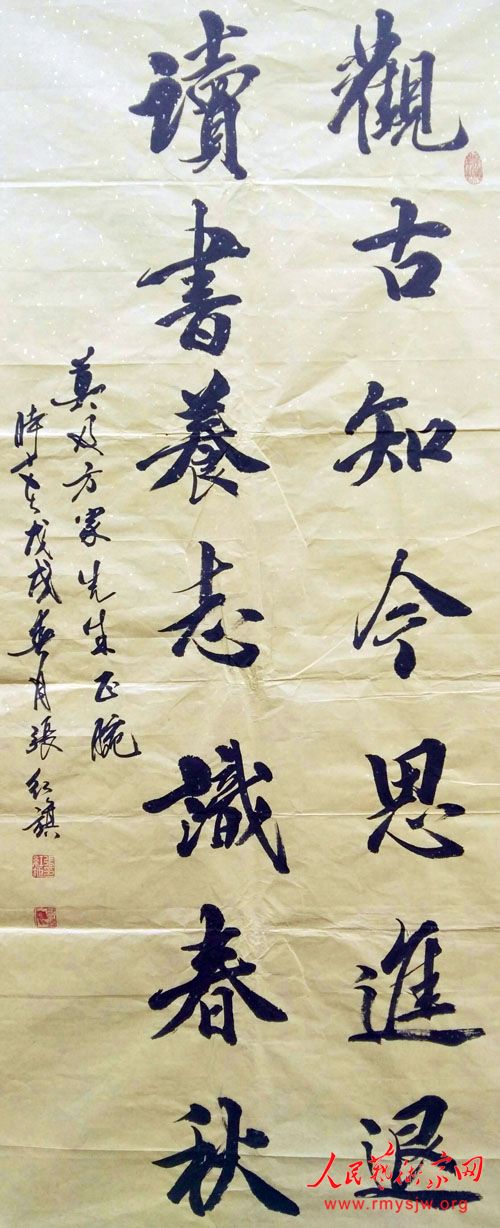 觀古知今思進退
讀書養志識春秋
方家先生正腕
時在戊戌春月張紅旗
人民艺术家网
www.rmysjw.org